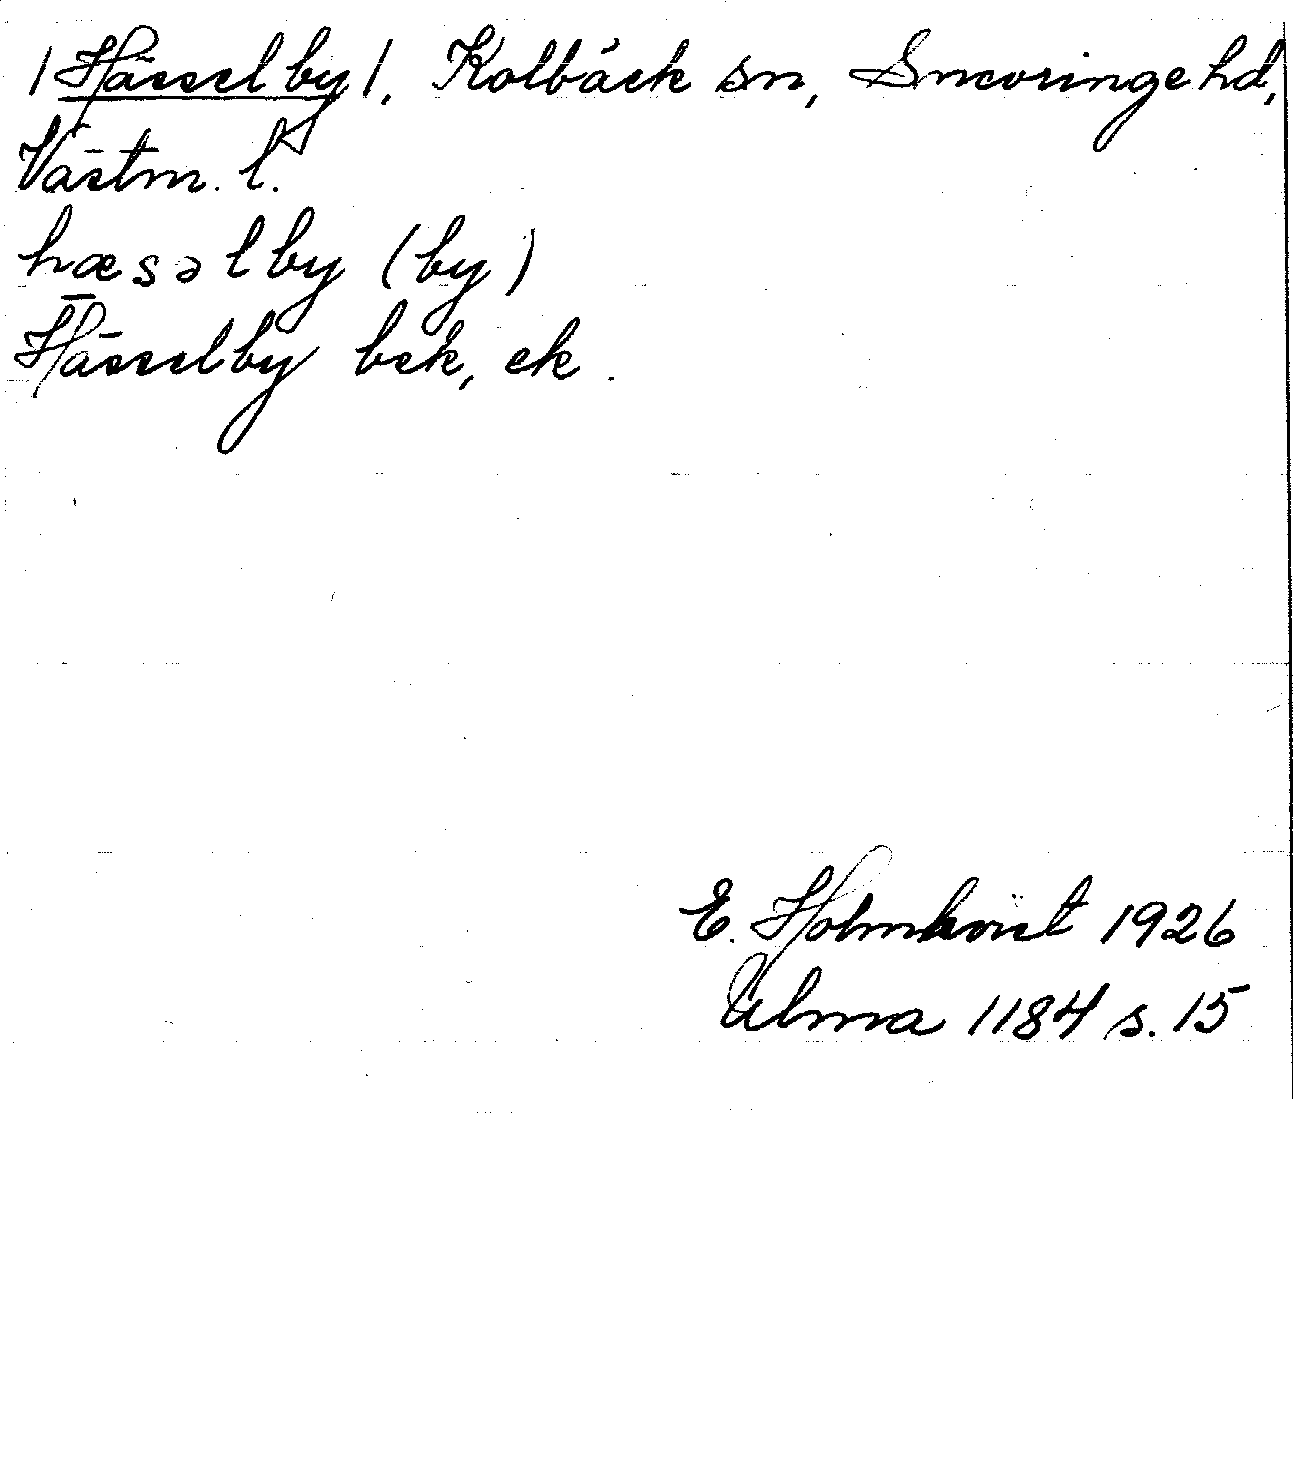 /Hässelby/, Kolbäck sn, Snevringe hd,
Västm. l.
hæsəlby (by)
Hässelby bek, ek.
E. Holmkvist 1926
Ulma 1184 s. 15